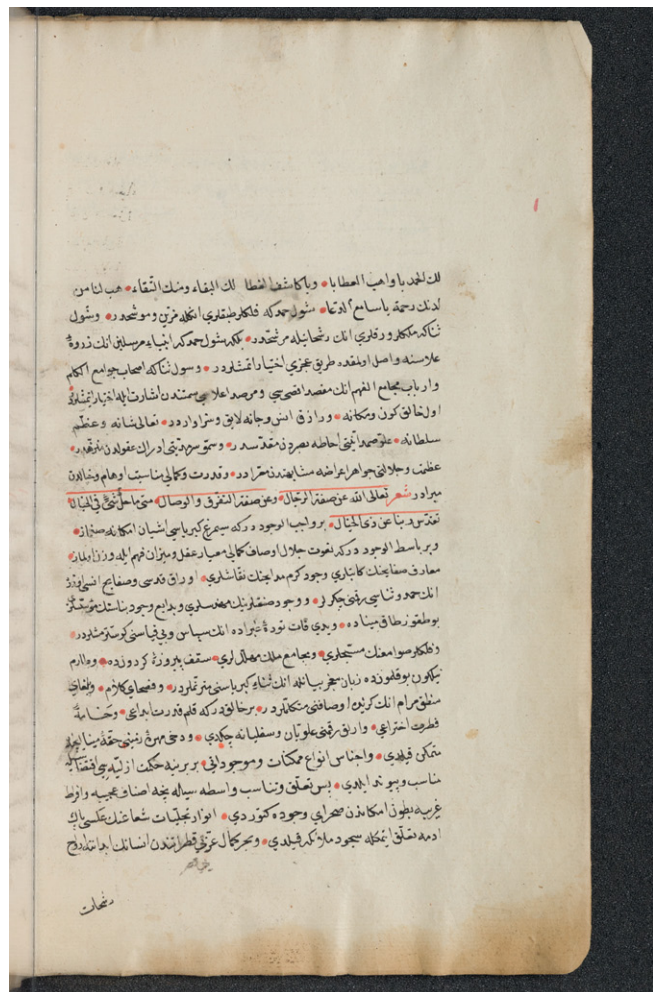 لك الحمد يا واهب العطايا • ويا كاشف الغطا لك البقاء ومنك التقاء • هب لنا من
لدنك رحمة يا سامع الدعا • شول حمد كه فلكلر طبقلرى انكله مزين وموشحدر • وشول
ثنا كه ملكلر ورقلرى انك رشحاتيله مرشحدر • بلكه شول حمد كه انبياء مرسلين انك ذروهٔ
علاسنه واصل اولمقده طريق عجزى اختيار اتمشلردر • وسول ثنا كه اصحاب جوامع الكلم
وارباب مجامع الفهم انك مقصد اقصى سى ومرصد اعلا سى سمتندن اشارت ايله اختيار ايتمشلردر
اول خالق كون ومكانه • ورازق انس وجانه لايق وسزاواردر • تعالى شانه وعظم
سلطانه • علو صمدانيتى احاطه بصردن مقدسدر • وسمو سرمديتى ادراك عقولدن منزهدر •
عظمت وجلالتى جواهر اعراضه مشابهتدن معرادر • وقدرت وكمالى مناسبت اوهام وخيالدن
مبرادر شعر تعالى الله عن صفة الرجال • وعن صفة التفرق والوصال • متى ما حل شئ فى الخيال
تقدس ربنا عن ذى الخيال • بر واجب الوجود دركه سيمرغ كبرياسى اشيان امكانه صغماز •
وبر باسط الوجود دركه نعوت جلال اوصاف كمالى معيار عقل وميزان فهم ايله وزن اولماز •
معارف صفايحنك كاتبلرى وجود كرم مدايحنك نقاشلرى • اوراق قدسى وصفايح انسى اوزره
انك حمد وثناسى رقمنى چكرلر • ووجود صنفلرينك مهندسلرى وبدايع وجود بناسنك
بو طقوز طاق مينا ده • ويدى قات تودهٔ غبراده انك سپاس وبى قياسنى كوسترمشلردر •
وفلكلر صوامعنك مسبحلرى • ومجامع ملك مهللرى • سقف پيروزهٔ كردوزده • وطارم
نيلكون بوقلموزده زبان معجز بيانله انك ثناء كبرياسنى • وفصحاى كلام • وبلغاى
منطق مرام انك كزيده اوصافنى متكلملردر • بر خالق دركه قلم قدرت ابداعى • وخامهٔ
فطرت اختراعى • واريق رقمنى علويان وسفليانه چكدى • ودخى مهرهٔ زمينى حقهٔ مينا ايچره
متمكن قيلدى • واجناس انواع ممكنات وموجوداتى • بربرينه حكمت ازليه سى اقتضاسيله
مناسب وپيوند ايلدى • پس تعلق وتناسب واسطه سيله نيچه اصناف عجيبه وافراد
غريبه بطون امكاندن صحراى وجوده كتوردى • انوار تجليات شعاعنك عكسى پاك
ادمه تعلق ايتمكله مسجود ملائكه قيلدى • وبحر كمال عزتى قطراتندن انسانك ابدانه ارواح
رشحات